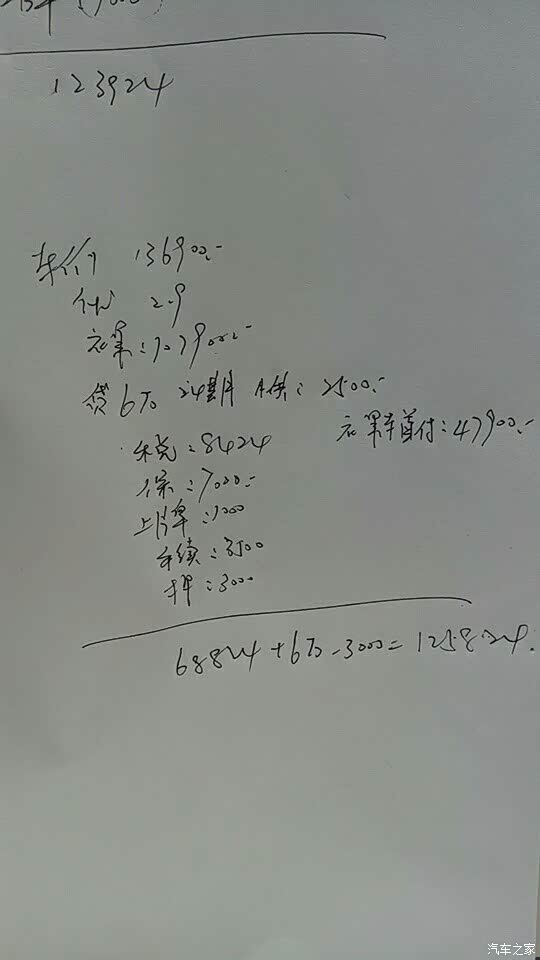 123924
车价 136900.-
优 2.9
裸:107900.-
贷6万 24期 月供:2500.-
裸车首付:47900.-
税:8424
保:7000.-
上牌:1000
手续:3500
押:3000
68824+6万-3000=125824.
汽车之家